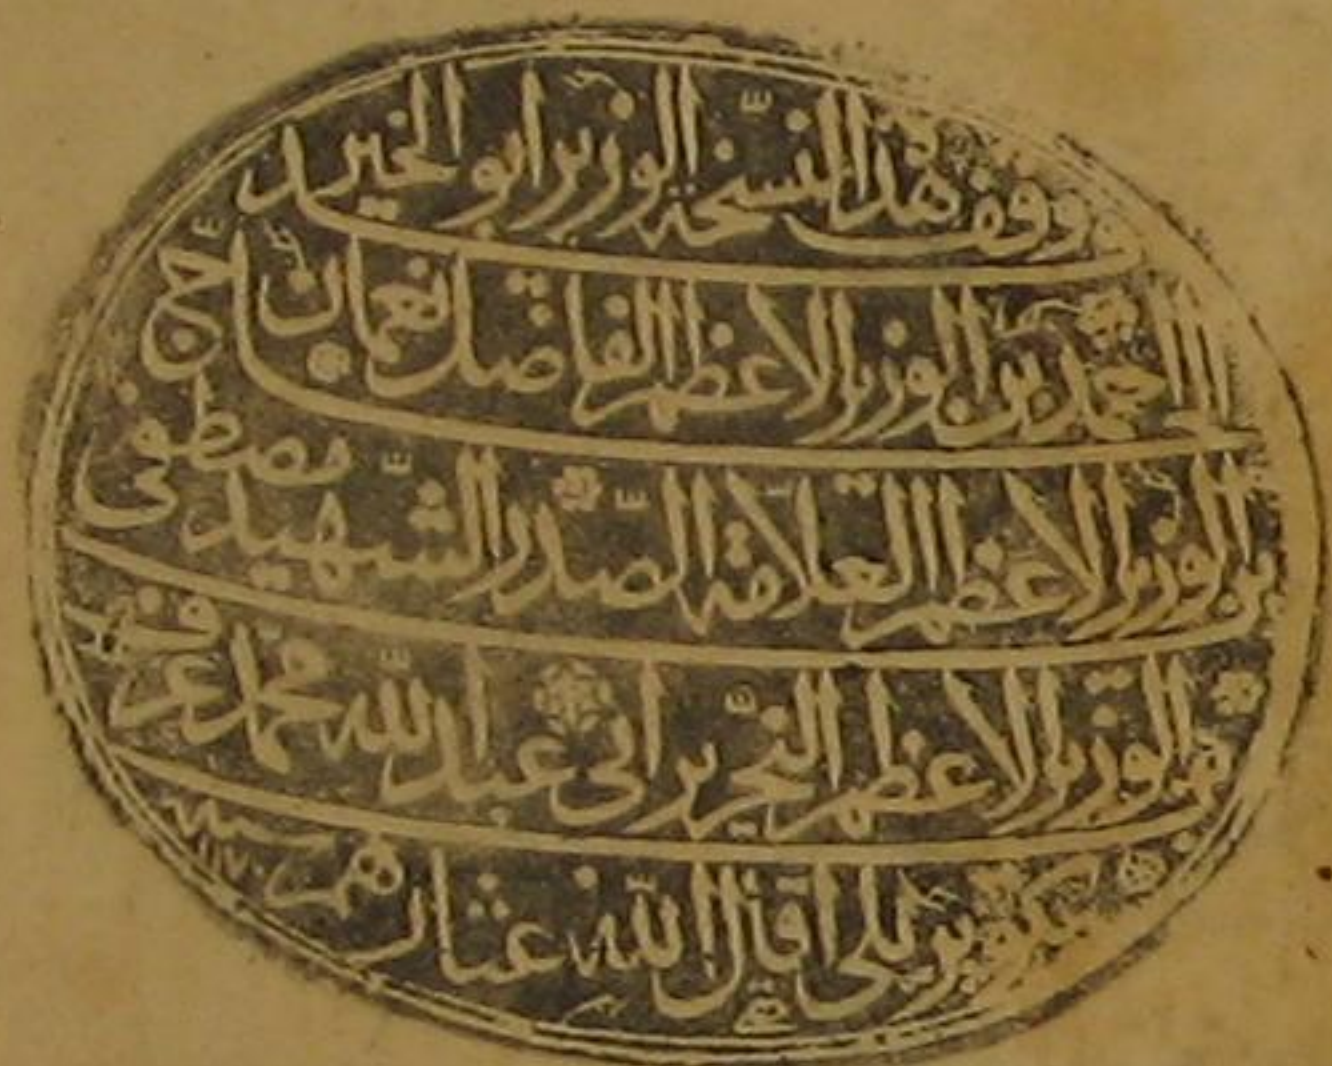 ووقف هذا النسخة الوزير ابو الخير
الحاج احمد بن الوزير الاعظم الفاضل نعمان
بن الوزير الاعظم العلامة الصدر الشهيد مصطفى
بن الوزير الاعظم النحرير ابي عبد الله محمد عرف
بكوپريلي اقال الله عثارهم سنه ١١٧٠